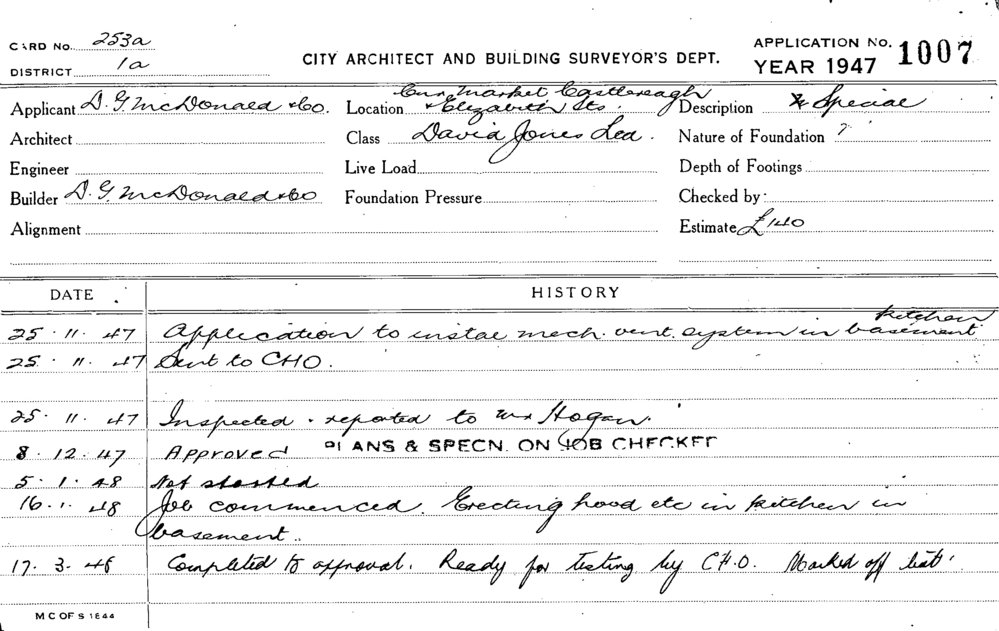 CARD No. 253a
DISTRICT 1a
CITY ARCHITECT AND BUILDING SURVEYOR'S DEPT.
APPLICATION No. 1007
YEAR 1947
Applicant D. G. McDonald & Co.
Location Cnr. Market Castlereagh
& Elizabeth Sts.
Description Special
Architect
Class David Jones Led.
Nature of Foundation ?
Engineer
Live Load
Depth of Footings
Builder D. G. McDonald & Co
Foundation Pressure
Checked by
Alignment
Estimate £140
DATE
HISTORY
25. 11. 47 Application to instal mech. vent. system in kitchen basement
25. 11. 47 Sent to CHO.
25. 11. 47 Inspected . reported to Mr Hogan.
8. 12. 47 Approved PLANS & SPECN. ON JOB CHECKED
5. 1. 48 Not started
16. 1. 48 Job commenced. Erecting hood etc in kitchen in
basement..
17. 3. 48 Completed to approval. Ready for testing by C.H.O. Marked off list.
M C OF S 1844